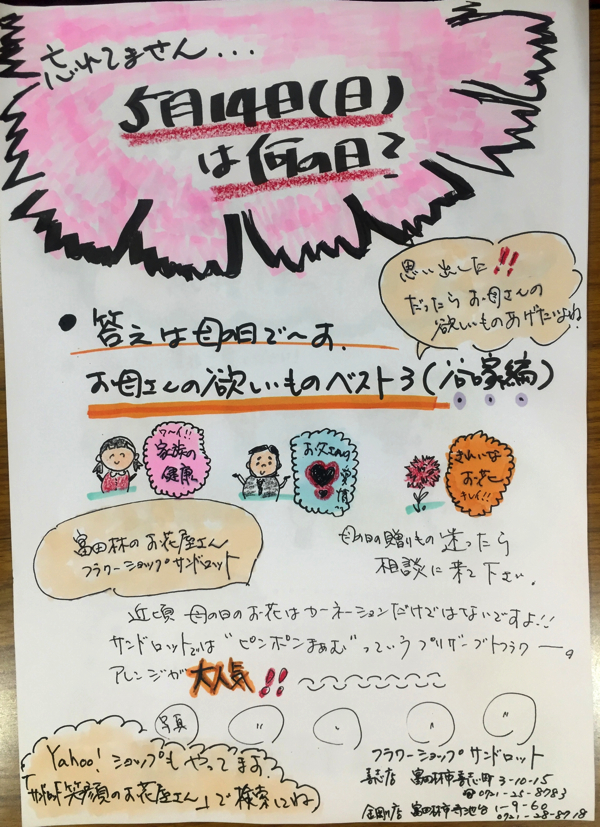 忘れてません...
5月14日(日)
は何の日?
思い出した!!
だったらお母さんの
欲しいものあげたいよね
● 答えは母の日で〜す.
お母さんの欲しいものベスト3(谷家編)
ワ〜イ!!
家族の
健康
お父さんの
愛情
きれいな
お花
キレイ!!
富田林のお花屋さん
フラワーショップサンドロット
母の日の贈りもの迷ったら
相談に来て下さい.
近頃 母の日のお花はカーネーションだけではないですよ!!
サンドロットでは"ピンポンまあむ"っていうプリザーブドフラワー。
アレンジが大人気!!
写真 〃 〃 〃 〃
Yahoo!ショップもやってます.
「サンドロット笑顔のお花屋さん」で検索してね)
フラワーショップサンドロット
喜志店 富田林市喜志町3-10-15
☎0721-25-8783
金剛店 富田林市寺池台1-9-60
0721-28-8718